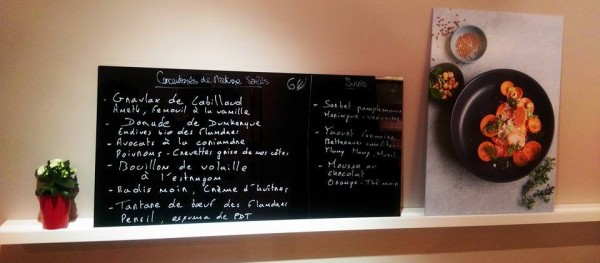 Concentrés de Madame Sorlès
6€
- Gravlax de Cabillaud
Aneth, fenouil à la vanille
- Dorade de Dunkerque
Endives bio des Flandres
- Avocats à la coriandre
Poivrons - Crevettes grise de nos côtes
- Bouillon de volaille
à l'estragon
- Radis noir, Crème d'huîtres
- Tartare de bœuf des Flandres
Persil, espuma de PDT
- Sorbet pamplemousse
- Yaourt
- Mousse au
chocolat
Orange - Thé